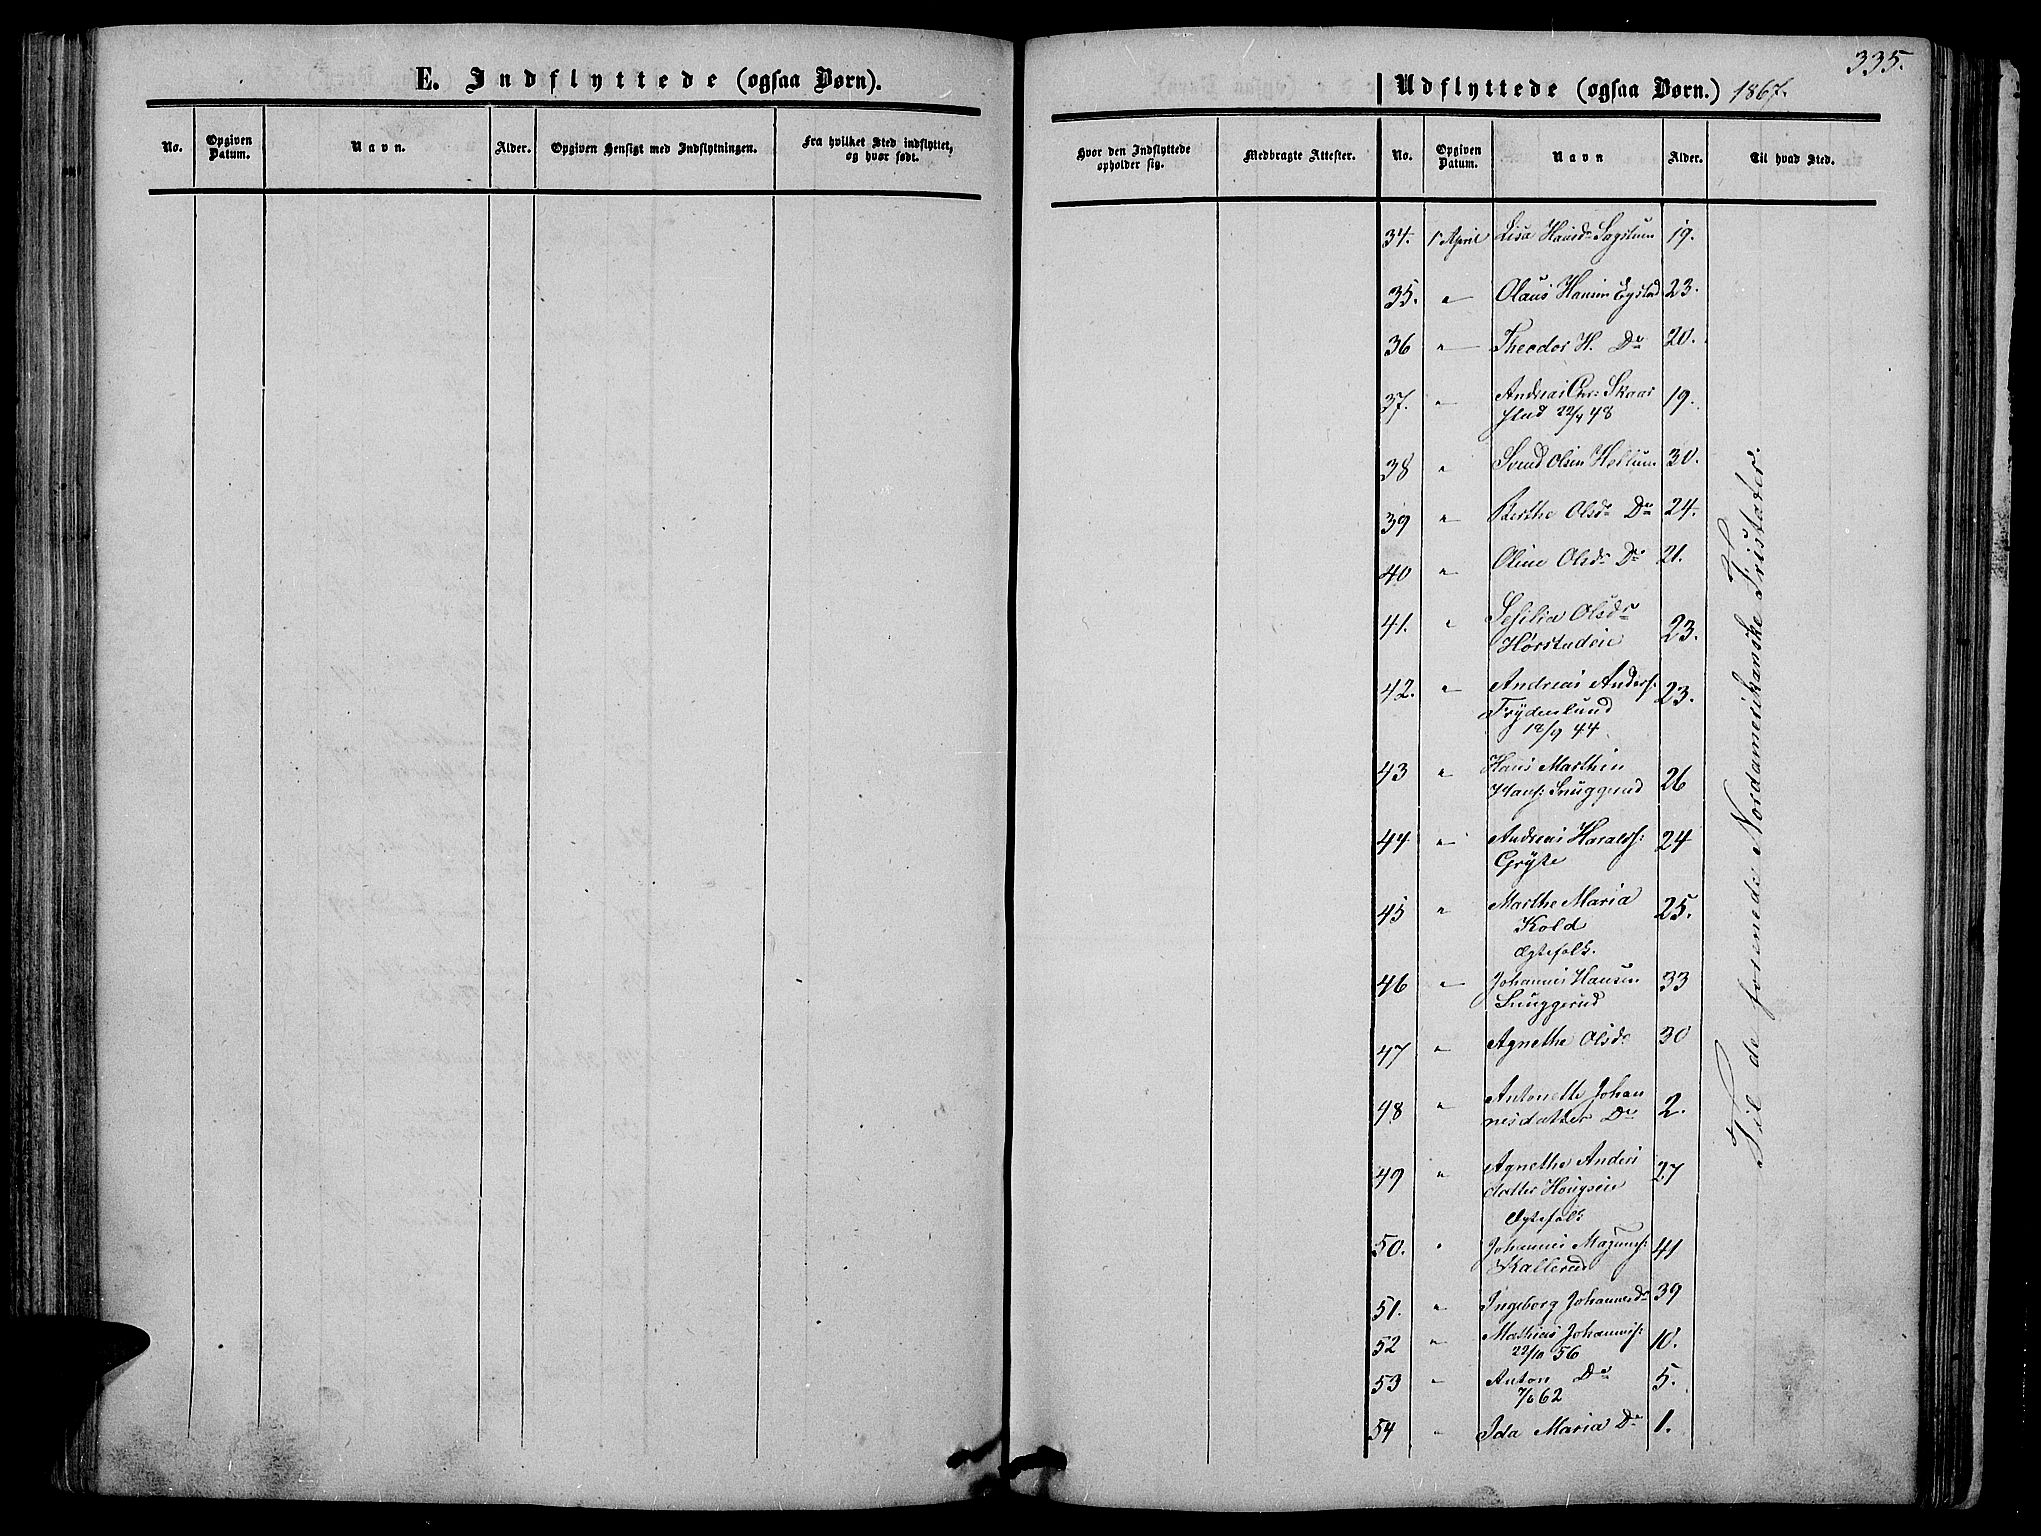 335.
E. Indflyttede (ogsaa Børn).
No.
Opgiven Datum.
Navn.
Alder.
Opgiven Hensigt med Indflytningen.
Fra hvilket Sted indflyttet, og hvor født.
Udflyttede (ogsaa Børn.) 1867.
Hvor den Indflyttede opholder sig.
Medbragte Attester.
No.
Opgiven Datum.
Navn
Alder.
Til hvad Sted.
34. 1 April Lisa Hansd: Sagstuen 19.
35. " Olaus Hansen Egstad 23.
36 " Theodor H. Do 20.
37. " Andreas Chr: Skaar
stad 22/4 48 19.
38 " Svend Olsen Hollum 30.
39 " Berthe Olsd: Do 24.
40 " Oline Olsd: Do 21.
41. " Sesilia Olsdr
Hørstadeie 23.
42. " Andreas Anders:
Frydenlund 23.
12/9 44
43 " Hans Marthin
Hans: Snuggerud 26
44 " Andreas Haralds:
Gryte 24
45 " Marthe Maria
Kold 25.
Ægtefolk.
46 " Johannes Hansen
Snuggerud 33
47 " Agnethe Olsd: 30
48 " Antonette Johan
nesdatter Do 2.
49 " Agnethe Anders
datter Hougseie 27
Ægtefolk
50. " Johannes Magnus:
Kallerud 41
51. " Ingeborg Johannesd: 39
52 " Mathias Johannes: 10.
22/10 56
53 " Anton Do 5.
7/6 62
54 " Ida Maria Do 1.
Til de forenede Nordamerikanske Fristater.